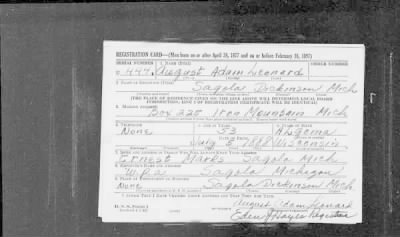 REGISTRATION CARD—(Men born on or after April 28, 1877 and on or before February 16, 1897)
SERIAL NUMBER 1. NAME (Print)
U 444 August Adam Leonard
2. PLACE OF RESIDENCE (Print)
Sagola Dickinson Mich
(THE PLACE OF RESIDENCE GIVEN ON THE LINE ABOVE WILL DETERMINE LOCAL BOARD
JURISDICTION; LINE 2 OF REGISTRATION CERTIFICATE WILL BE IDENTICAL)
3. MAILING ADDRESS
Box 225 Iron Mountain Mich
4. TELEPHONE 5. AGE IN YEARS 6. PLACE OF BIRTH
None 53 Algoma
July 5 1888 Wisconsin
7. NAME AND ADDRESS OF PERSON WHO WILL ALWAYS KNOW YOUR ADDRESS
Ernest Marks Sagola Mich
8. EMPLOYER'S NAME AND ADDRESS
W.P.a Sagola Michigan
9. PLACE OF EMPLOYMENT OR BUSINESS
None Sagola Dickinson Mich
I AFFIRM THAT I HAVE VERIFIED ABOVE ANSWERS AND THAT THEY ARE TRUE.
D. S. S. Form 1
August Adam Leonard
Hayes Registrar